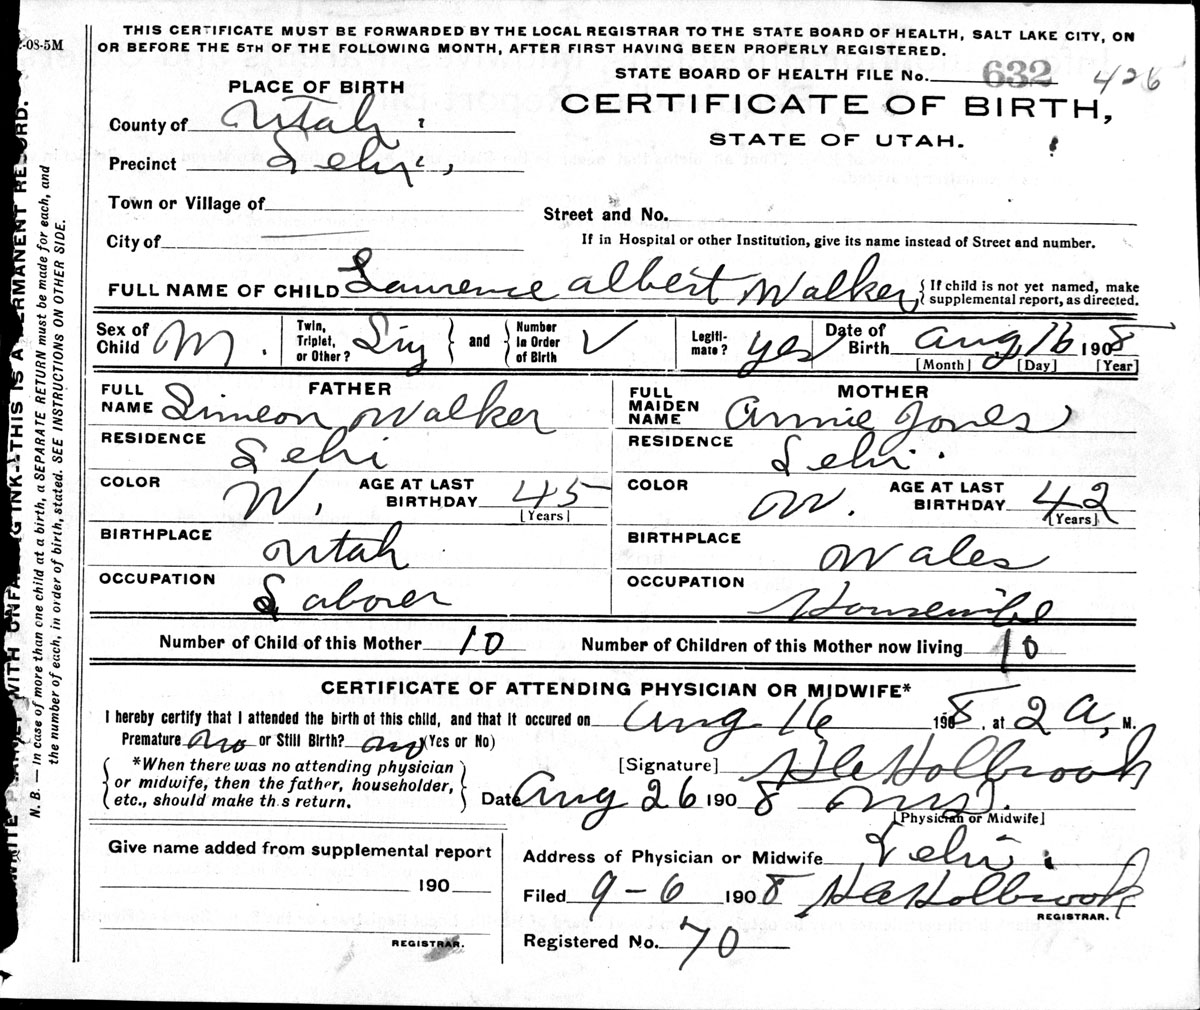 2-08-5M
THIS CERTIFICATE MUST BE FORWARDED BY THE LOCAL REGISTRAR TO THE STATE BOARD OF HEALTH, SALT LAKE CITY, ON
OR BEFORE THE 5TH OF THE FOLLOWING MONTH, AFTER FIRST HAVING BEEN PROPERLY REGISTERED.
STATE BOARD OF HEALTH FILE No. 632 426
PLACE OF BIRTH
CERTIFICATE OF BIRTH,
STATE OF UTAH.
County of Utah.
Precinct Lehi,
Town or Village of
Street and No.
City of
If in Hospital or other Institution, give its name instead of Street and number.
FULL NAME OF CHILD Laurence Albert Walker { If child is not yet named, make
supplemental report, as directed.
Sex of Child M. Twin, Triplet, or Other? Sing } and { Number in Order of Birth Legiti-mate? yes Date of Birth Aug 16 1908
[Month] [Day] [Year]
FATHER MOTHER
FULL NAME Simeon Walker FULL MAIDEN NAME Annie Jones
RESIDENCE Lehi RESIDENCE Lehi.
COLOR W. AGE AT LAST BIRTHDAY 45 [Years] COLOR W. AGE AT LAST BIRTHDAY 42 [Years]
BIRTHPLACE Utah BIRTHPLACE Wales
OCCUPATION Laborer OCCUPATION Housewife
Number of Child of this Mother 10 Number of Children of this Mother now living 10
CERTIFICATE OF ATTENDING PHYSICIAN OR MIDWIFE*
I hereby certify that I attended the birth of this child, and that it occured on Aug 16 1908, at 2 A, M.
Premature no or Still Birth? no (Yes or No)
*When there was no attending physician
or midwife, then the father, householder,
etc., should make this return.
[Signature] Holbrook
Date Aug 26 1908 M.D.
[Physician or Midwife]
Give name added from supplemental report
190
REGISTRAR.
Address of Physician or Midwife Lehi.
Filed 9-6 1908 Holbrook
REGISTRAR.
Registered No. 70
WRITE PLAINLY WITH UNFADING INK—THIS IS A PERMANENT RECORD.
N. B.—In case of more than one child at a birth, a SEPARATE RETURN must be made for each, and
the number of each, in order of birth, stated. SEE INSTRUCTIONS ON OTHER SIDE.